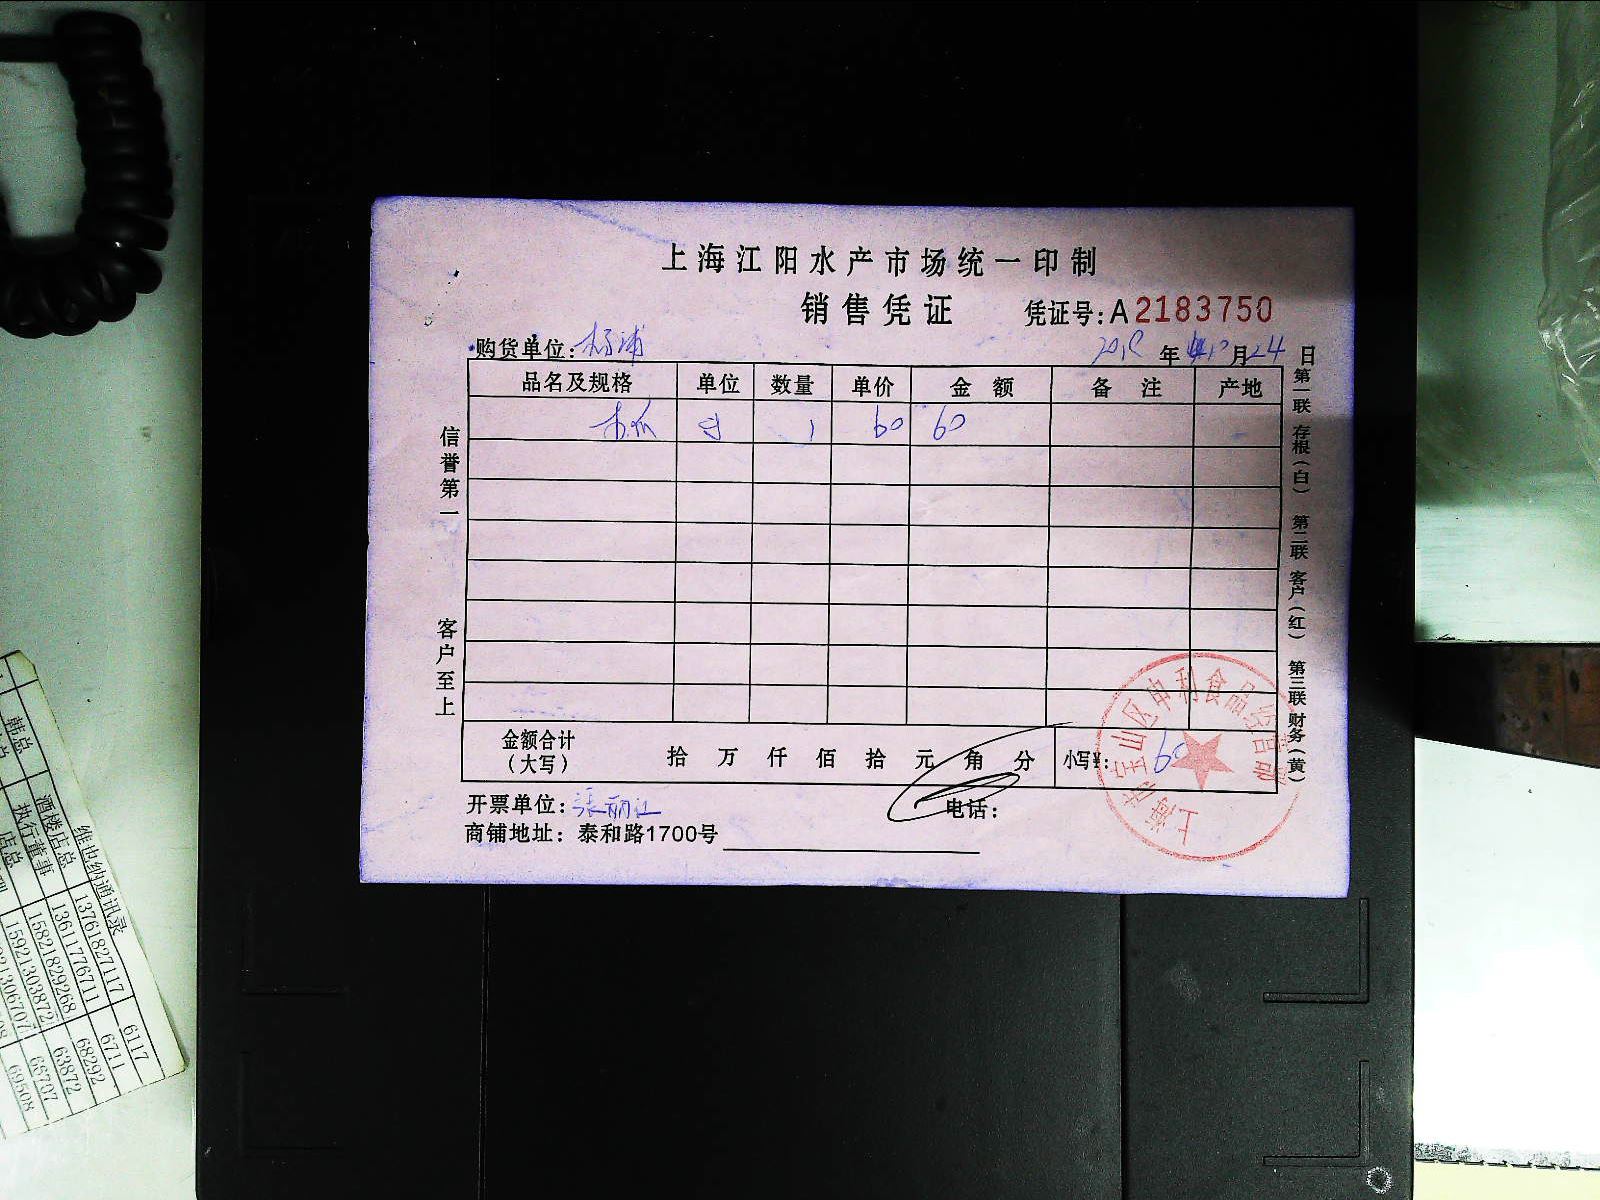 上海江阳水产市场统一印制
销售凭证 凭证号：A2183750
购货单位：杨浦 年 月24日
品名及规格 单位 数量 单价 金额 备注 产地
木瓜 1 60 60
信誉第一
客户至上
第一联 存根（白） 第二联 客户（红） 第三联 财务（黄）
金额合计（大写） 拾 万 仟 佰 拾 元 角 分 小写¥：60
开票单位：张丽江 电话：
商铺地址：泰和路1700号
上海市宝山区申利食品经营部
维也纳通讯录
韩总 酒楼店总 13761827117 6117
执行董事 13611776711 6711
店总 15821829268 68292
15921303872 63872
66707
69508